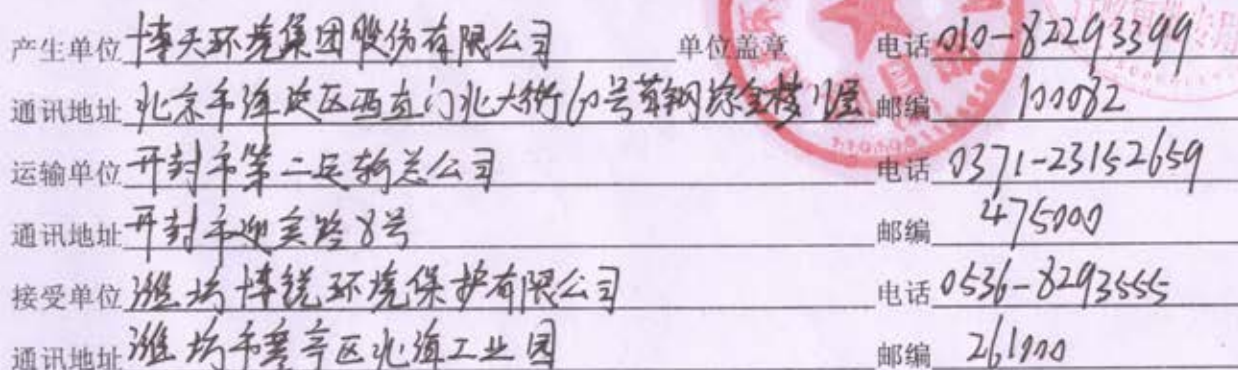 产生单位 博天环境集团股份有限公司 单位盖章 电话 010-82293399
通讯地址 北京市海淀区西直门北大街60号首钢综合楼12层 邮编 100082
运输单位 开封市第二运输总公司 电话 0371-23152659
通讯地址 开封市迎宾路8号 邮编 475000
接受单位 潍坊博锐环境保护有限公司 电话 0536-8293555
通讯地址 潍坊市寒亭区北海工业园 邮编 261000